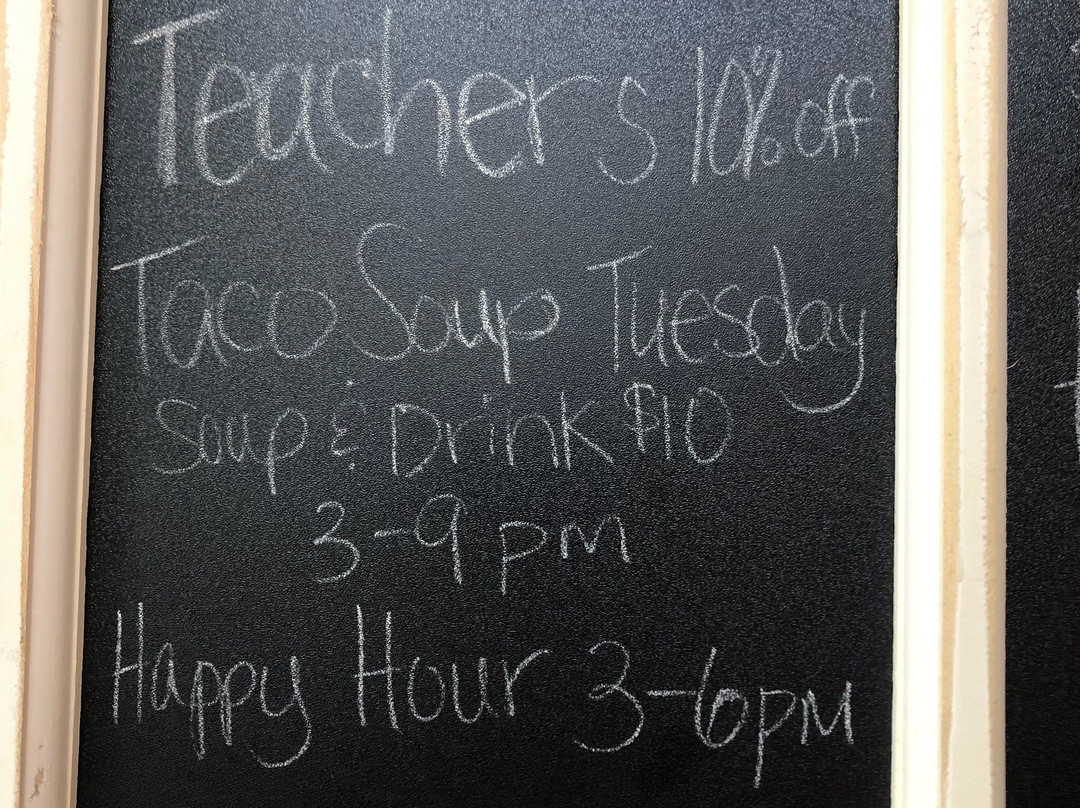 Teachers 10% off
Taco Soup Tuesday
Soup & Drink $10
3-9 pm
Happy Hour 3-6pm